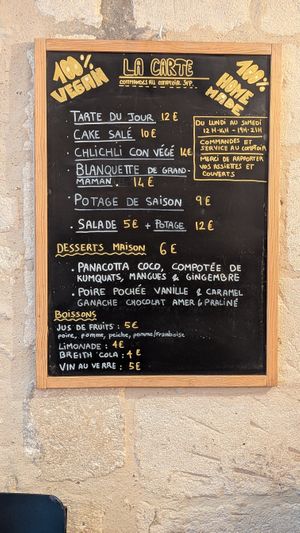 100% VEGAN
LA CARTE
COMMANDES AU COMPTOIR SVP
100% HOME MADE
TARTE DU JOUR 12 €
CAKE SALÉ 10 €
CHLICHLI CON VÉGÉ 14€
BLANQUETTE DE GRAND-
MAMAN. 14 €
POTAGE DE SAISON 9 €
. SALADE 5€ + POTAGE 12 €
DU LUNDI AU SAMEDI
12H-16H - 19H-21H
COMMANDES ET
SERVICE AU COMPTOIR
MERCI DE RAPPORTER
VOS ASSIETTES ET
COUVERTS
DESSERTS MAISON 6 €
. PANACOTTA COCO, COMPOTÉE DE
KUMQUATS, MANGUES & GINGEMBRE
. POIRE POCHÉE VANILLE & CARAMEL
GANACHE CHOCOLAT AMER & PRALINÉ
BOISSONS
JUS DE FRUITS : 5€
poire, pomme, peiche, pomme/framboise
LIMONADE : 4€
BREITH COLA : 4 €
VIN AU VERRE : 5€